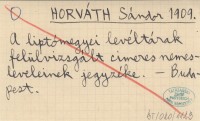 HORVÁTH Sándor 1909.
A liptómegyei levéltárak
felülvizsgált címeres nemes-
leveleinek jegyzéke. — Buda-
pest.